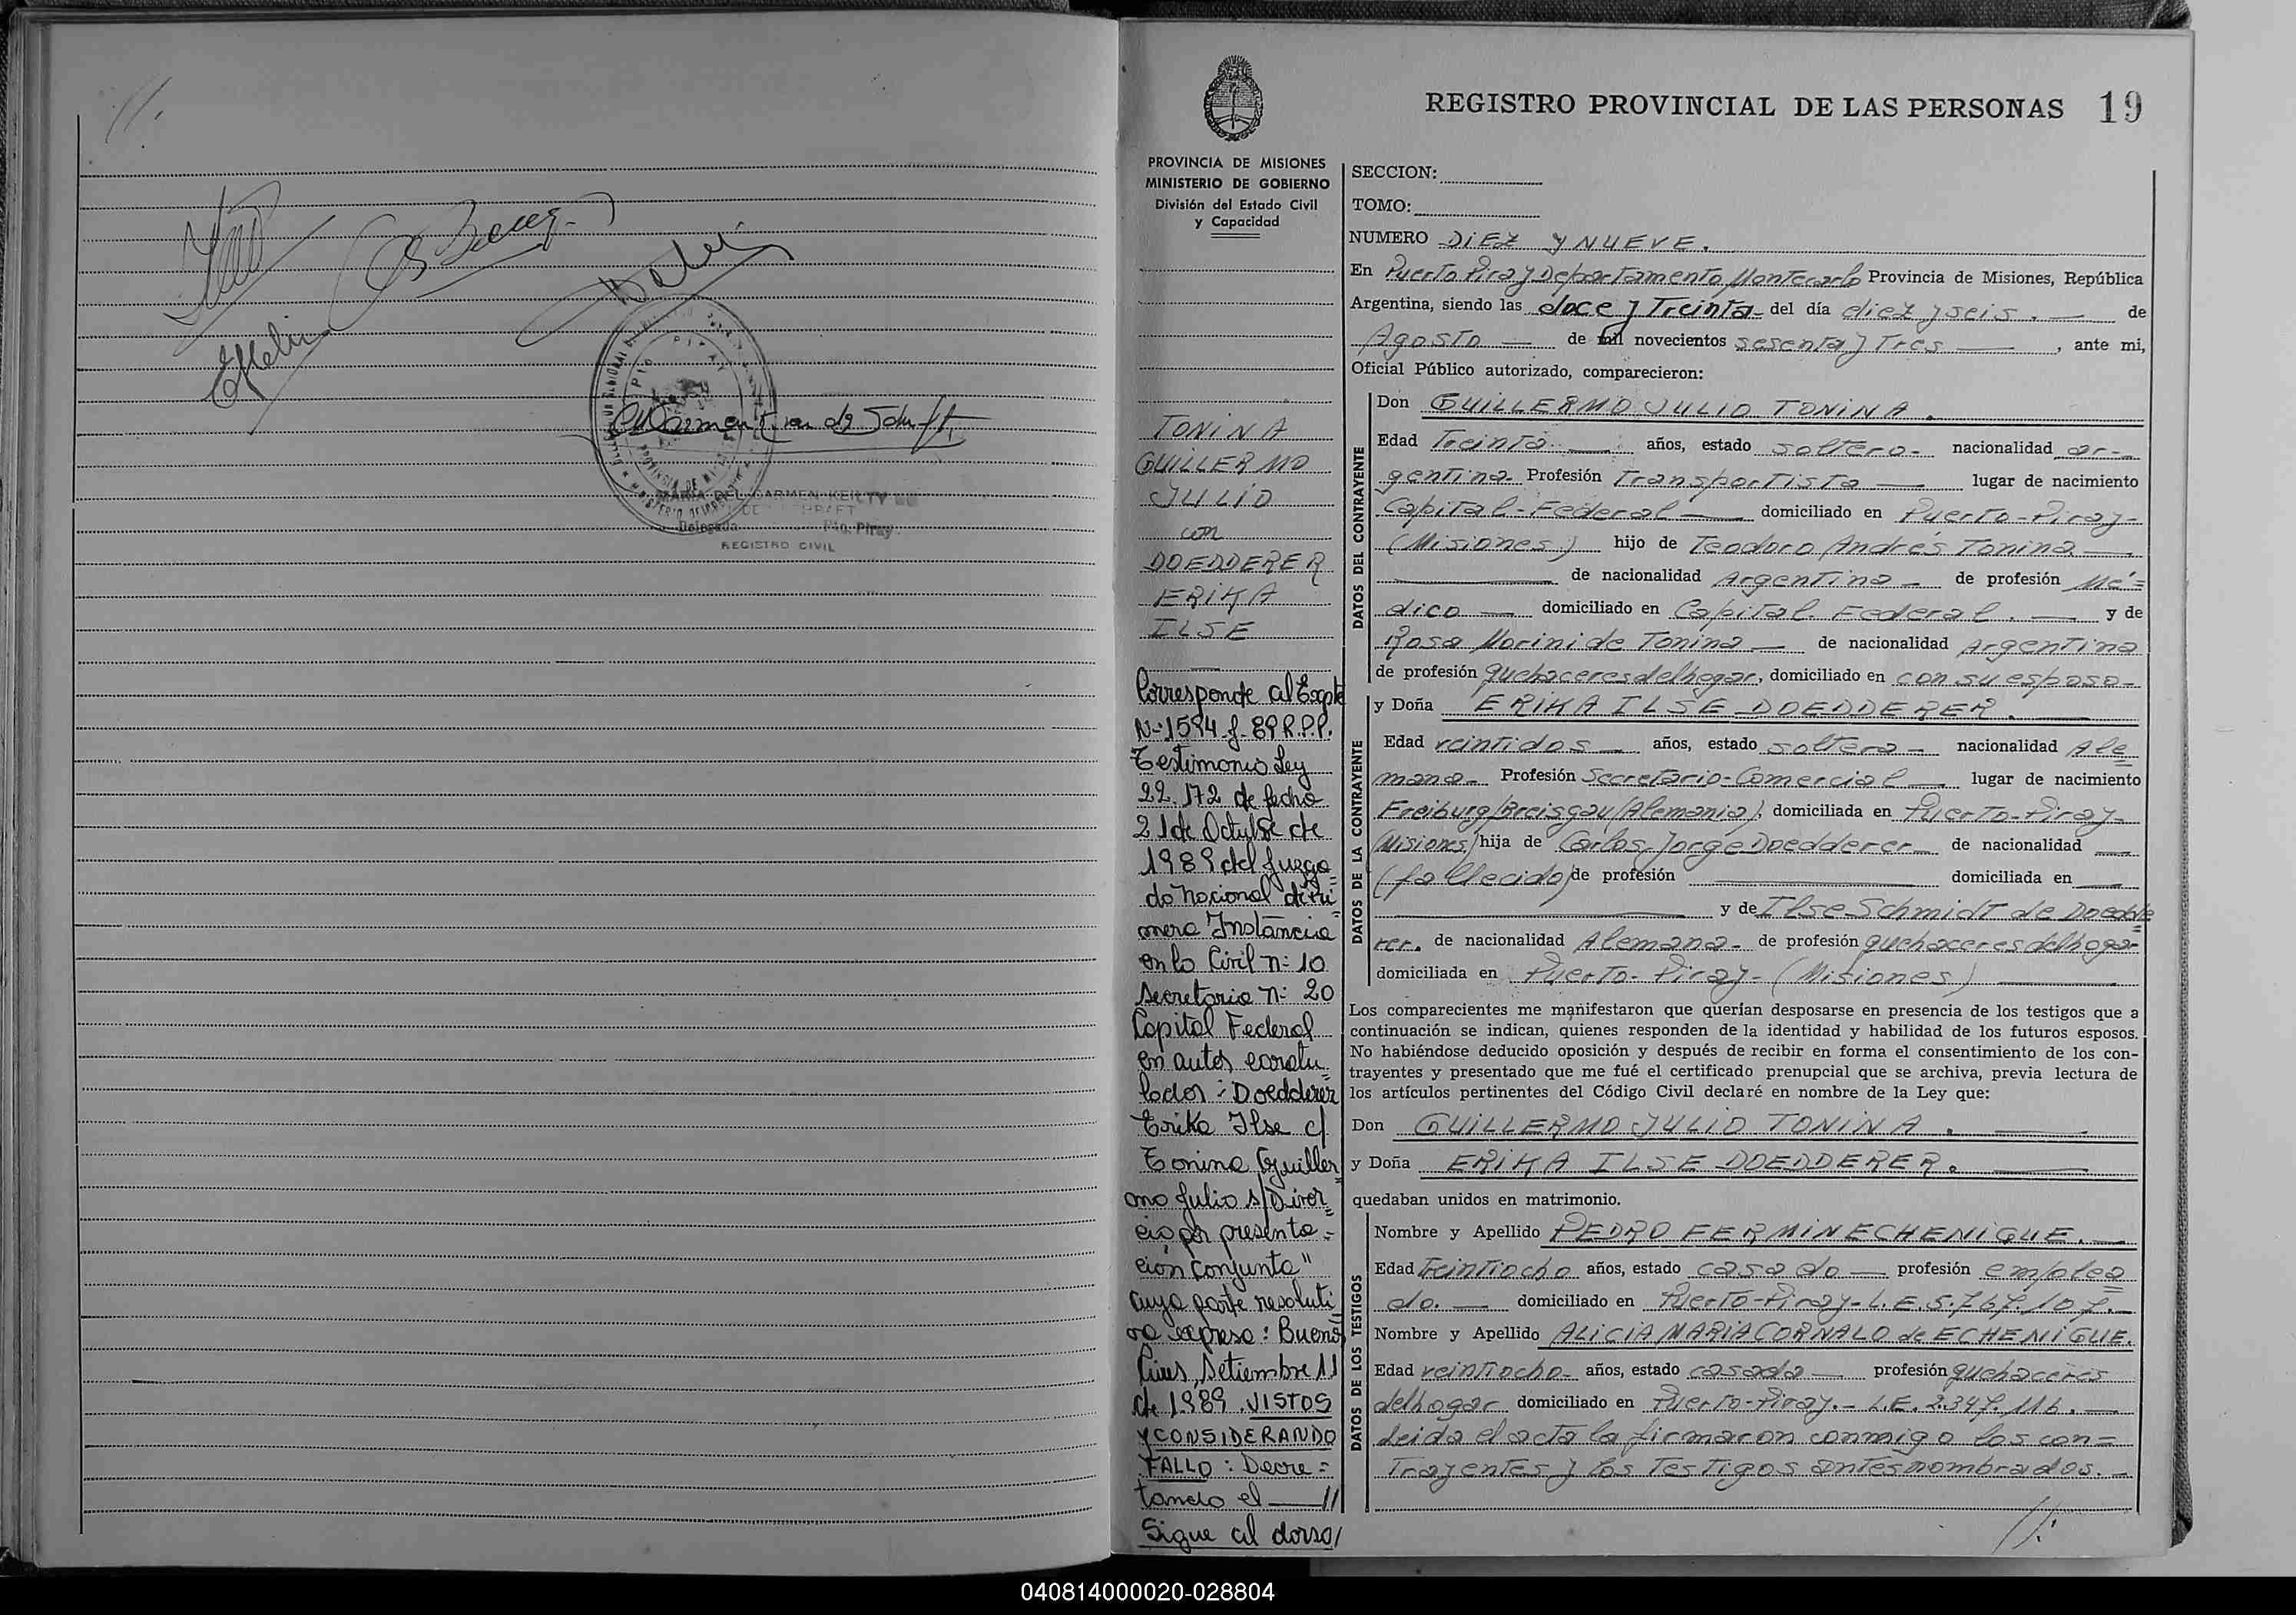 //.
MARIA DEL CARMEN KEILTY
DE
Delegada Pto. Piray
REGISTRO CIVIL
REGISTRO PROVINCIAL DE LAS PERSONAS 19
PROVINCIA DE MISIONES
MINISTERIO DE GOBIERNO
División del Estado Civil
y Capacidad
TONINA
GUILLERMO
JULIO
con
DOEDDERER
ERIKA
ILSE
Corresponde al Expte
Nº 1594-J-89 R.P.P.
Testimonio Ley
22.172 de fecha
21 de Octubre de
1989 del Juzga=
do Nacional de Pri=
mera Instancia
en lo Civil nº 10
Secretaria nº 20
Capital Federal
en autos caratu=
lados: Doedderer
Erika Ilse c/
Tonina Guiller=
mo Julio s/Divor=
cio por presenta=
ción conjunta"
cuya parte resoluti
va expresa: Buenos
Aires, Setiembre 11
de 1989. VISTOS
y CONSIDERANDO
FALLO: Decre=
tando el — //
Sigue al dorso/
SECCION:
TOMO:
NUMERO DIEZ Y NUEVE.
En Puerto Piray Departamento Montecarlo Provincia de Misiones, República
Argentina, siendo las doce y Treinta- del día diez y seis. — de
Agosto — de mil novecientos sesenta y Tres —, ante mi,
Oficial Público autorizado, comparecieron:
DATOS DEL CONTRAYENTE
Don GUILLERMO JULIO TONINA.
Edad Treinta — años, estado soltero- nacionalidad ar-
gentina- Profesión Transportista — lugar de nacimiento
Capital-Federal — domiciliado en Puerto-Piray-
(Misiones) hijo de Teodoro Andrés Tonina —
— de nacionalidad Argentina- de profesión Mé=
dico — domiciliado en Capital Federal. — y de
Rosa Morini de Tonina — de nacionalidad Argentina
de profesión quehaceres del hogar, domiciliado en con su esposo-
DATOS DE LA CONTRAYENTE
y Doña ERIKA ILSE DOEDDERER. —
Edad veintidos — años, estado soltera- nacionalidad Ale=
mana- Profesión Secretario-Comercial — lugar de nacimiento
Freiburg/Breisgau (Alemania), domiciliada en Puerto-Piray-
(Misiones) hija de Carlos Jorge Doedderer — de nacionalidad —
(fallecido) de profesión — domiciliada en —
— y de Ilse Schmidt de Doedde=
rer. de nacionalidad Alemana- de profesión quehaceres del hogar
domiciliada en Puerto-Piray-(Misiones) —
Los comparecientes me manifestaron que querían desposarse en presencia de los testigos que a
continuación se indican, quienes responden de la identidad y habilidad de los futuros esposos.
No habiéndose deducido oposición y después de recibir en forma el consentimiento de los con-
trayentes y presentado que me fué el certificado prenupcial que se archiva, previa lectura de
los artículos pertinentes del Código Civil declaré en nombre de la Ley que:
Don GUILLERMO JULIO TONINA. —
y Doña ERIKA ILSE DOEDDERER. —
quedaban unidos en matrimonio.
DATOS DE LOS TESTIGOS
Nombre y Apellido PEDRO FERMIN ECHENIQUE. —
Edad Treintiocho años, estado casado — profesión emplea=
do. — domiciliado en Puerto-Piray- L.E. 5.767.107. —
Nombre y Apellido ALICIA MARIA CORNALO de ECHENIQUE.
Edad veintiocho- años, estado casada — profesión quehaceres
del hogar domiciliado en Puerto-Piray.- L.E. 2.347.116. —
Leida el acta la firmaron conmigo los con=
Trayentes y los Testigos antes nombrados. —
//.
040814000020-028804